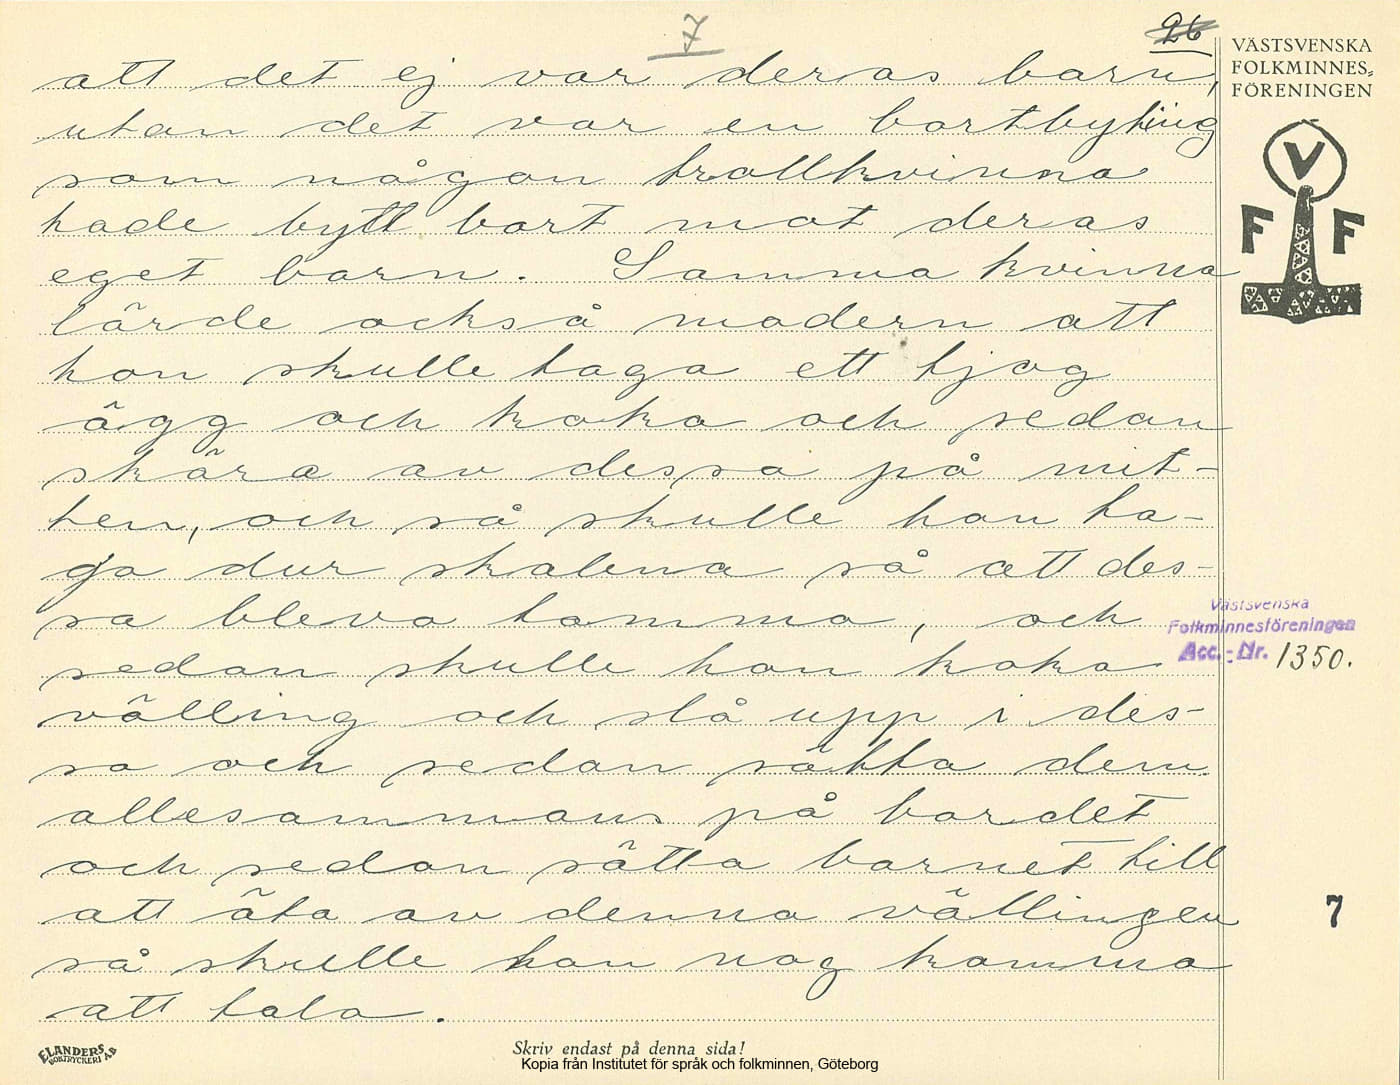 7
26
VÄSTSVENSKA
FOLKMINNES-
FÖRENINGEN
V
F F
att det ej var deras barn,
utan det var en bortbyting
som någon trollkvinna
hade bytt bort mot deras
eget barn. Samma kvinna
lärde också modern att
hon skulle taga ett tjog
ägg och koka och sedan
skära av dessa på mit-
ten, och så skulle hon ta-
ga dur skalena så att des-
sa bleva tomma, och
sedan skulle hon koka
välling och slå upp i des-
sa och sedan sätta dem
allesammans på bordet
och sedan sätta barnet till
att äta av denna vällingen
så skulle han nog komma
att tala.
Västsvenska
Folkminnesföreningen
Acc.-Nr. 1350.
7
ELANDERS
BOKTRYCKERI A.B
Skriv endast på denna sida!
Kopia från Institutet för språk och folkminnen, Göteborg